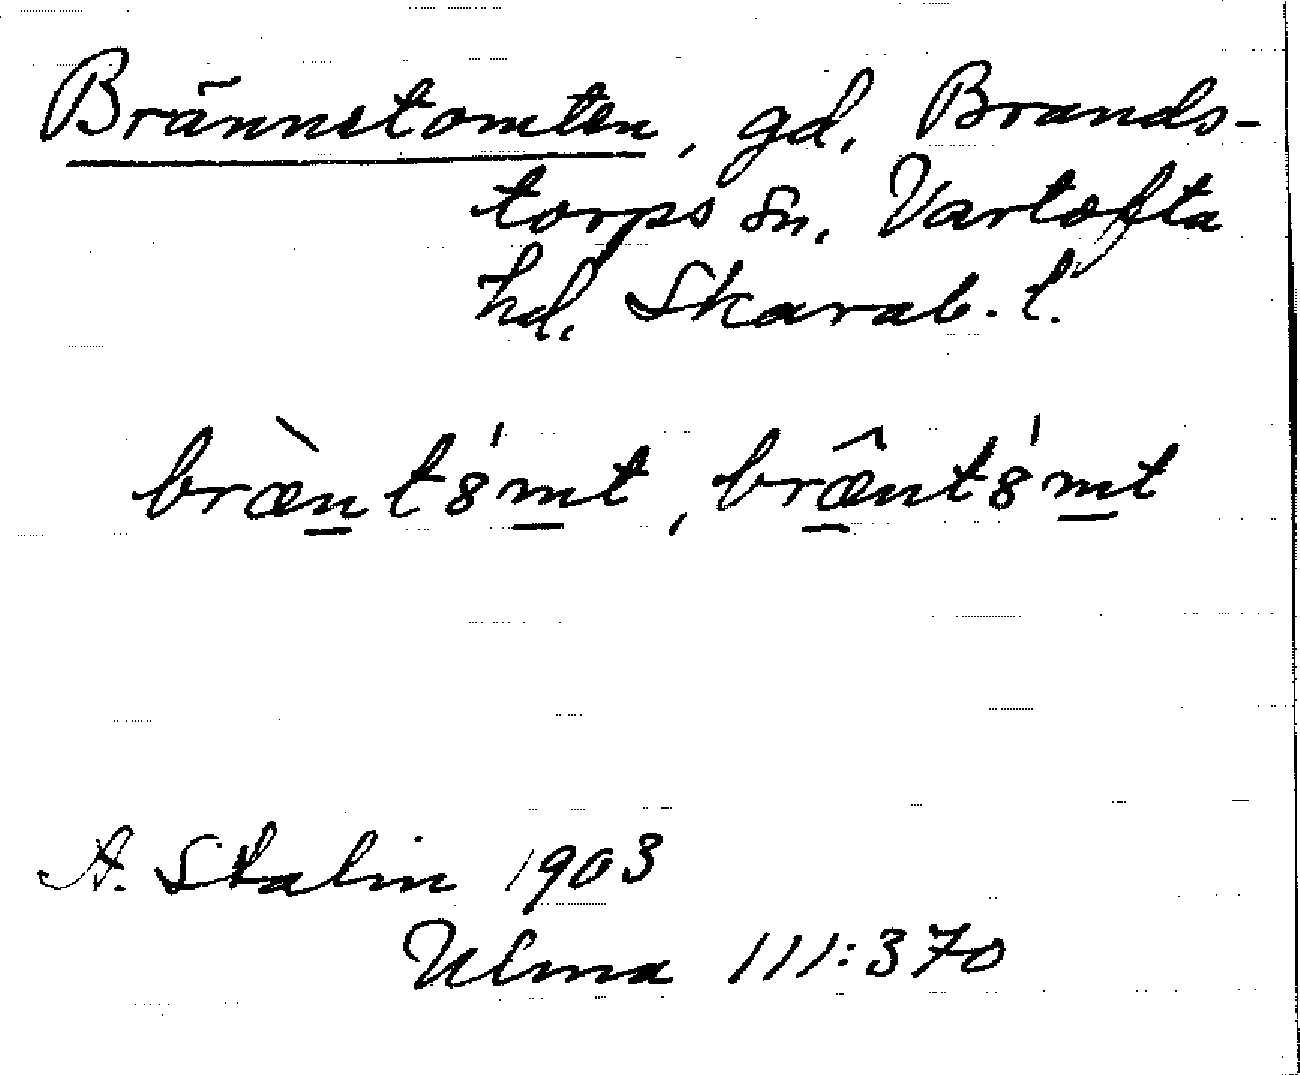 Brännstomten, gd. Brands-
torps sn. Vartofta
hd. Skarab. l.
bræ̀nt8́mt, bræ̂nt8́mt
A. Stalin 1903
Ulma 111:370